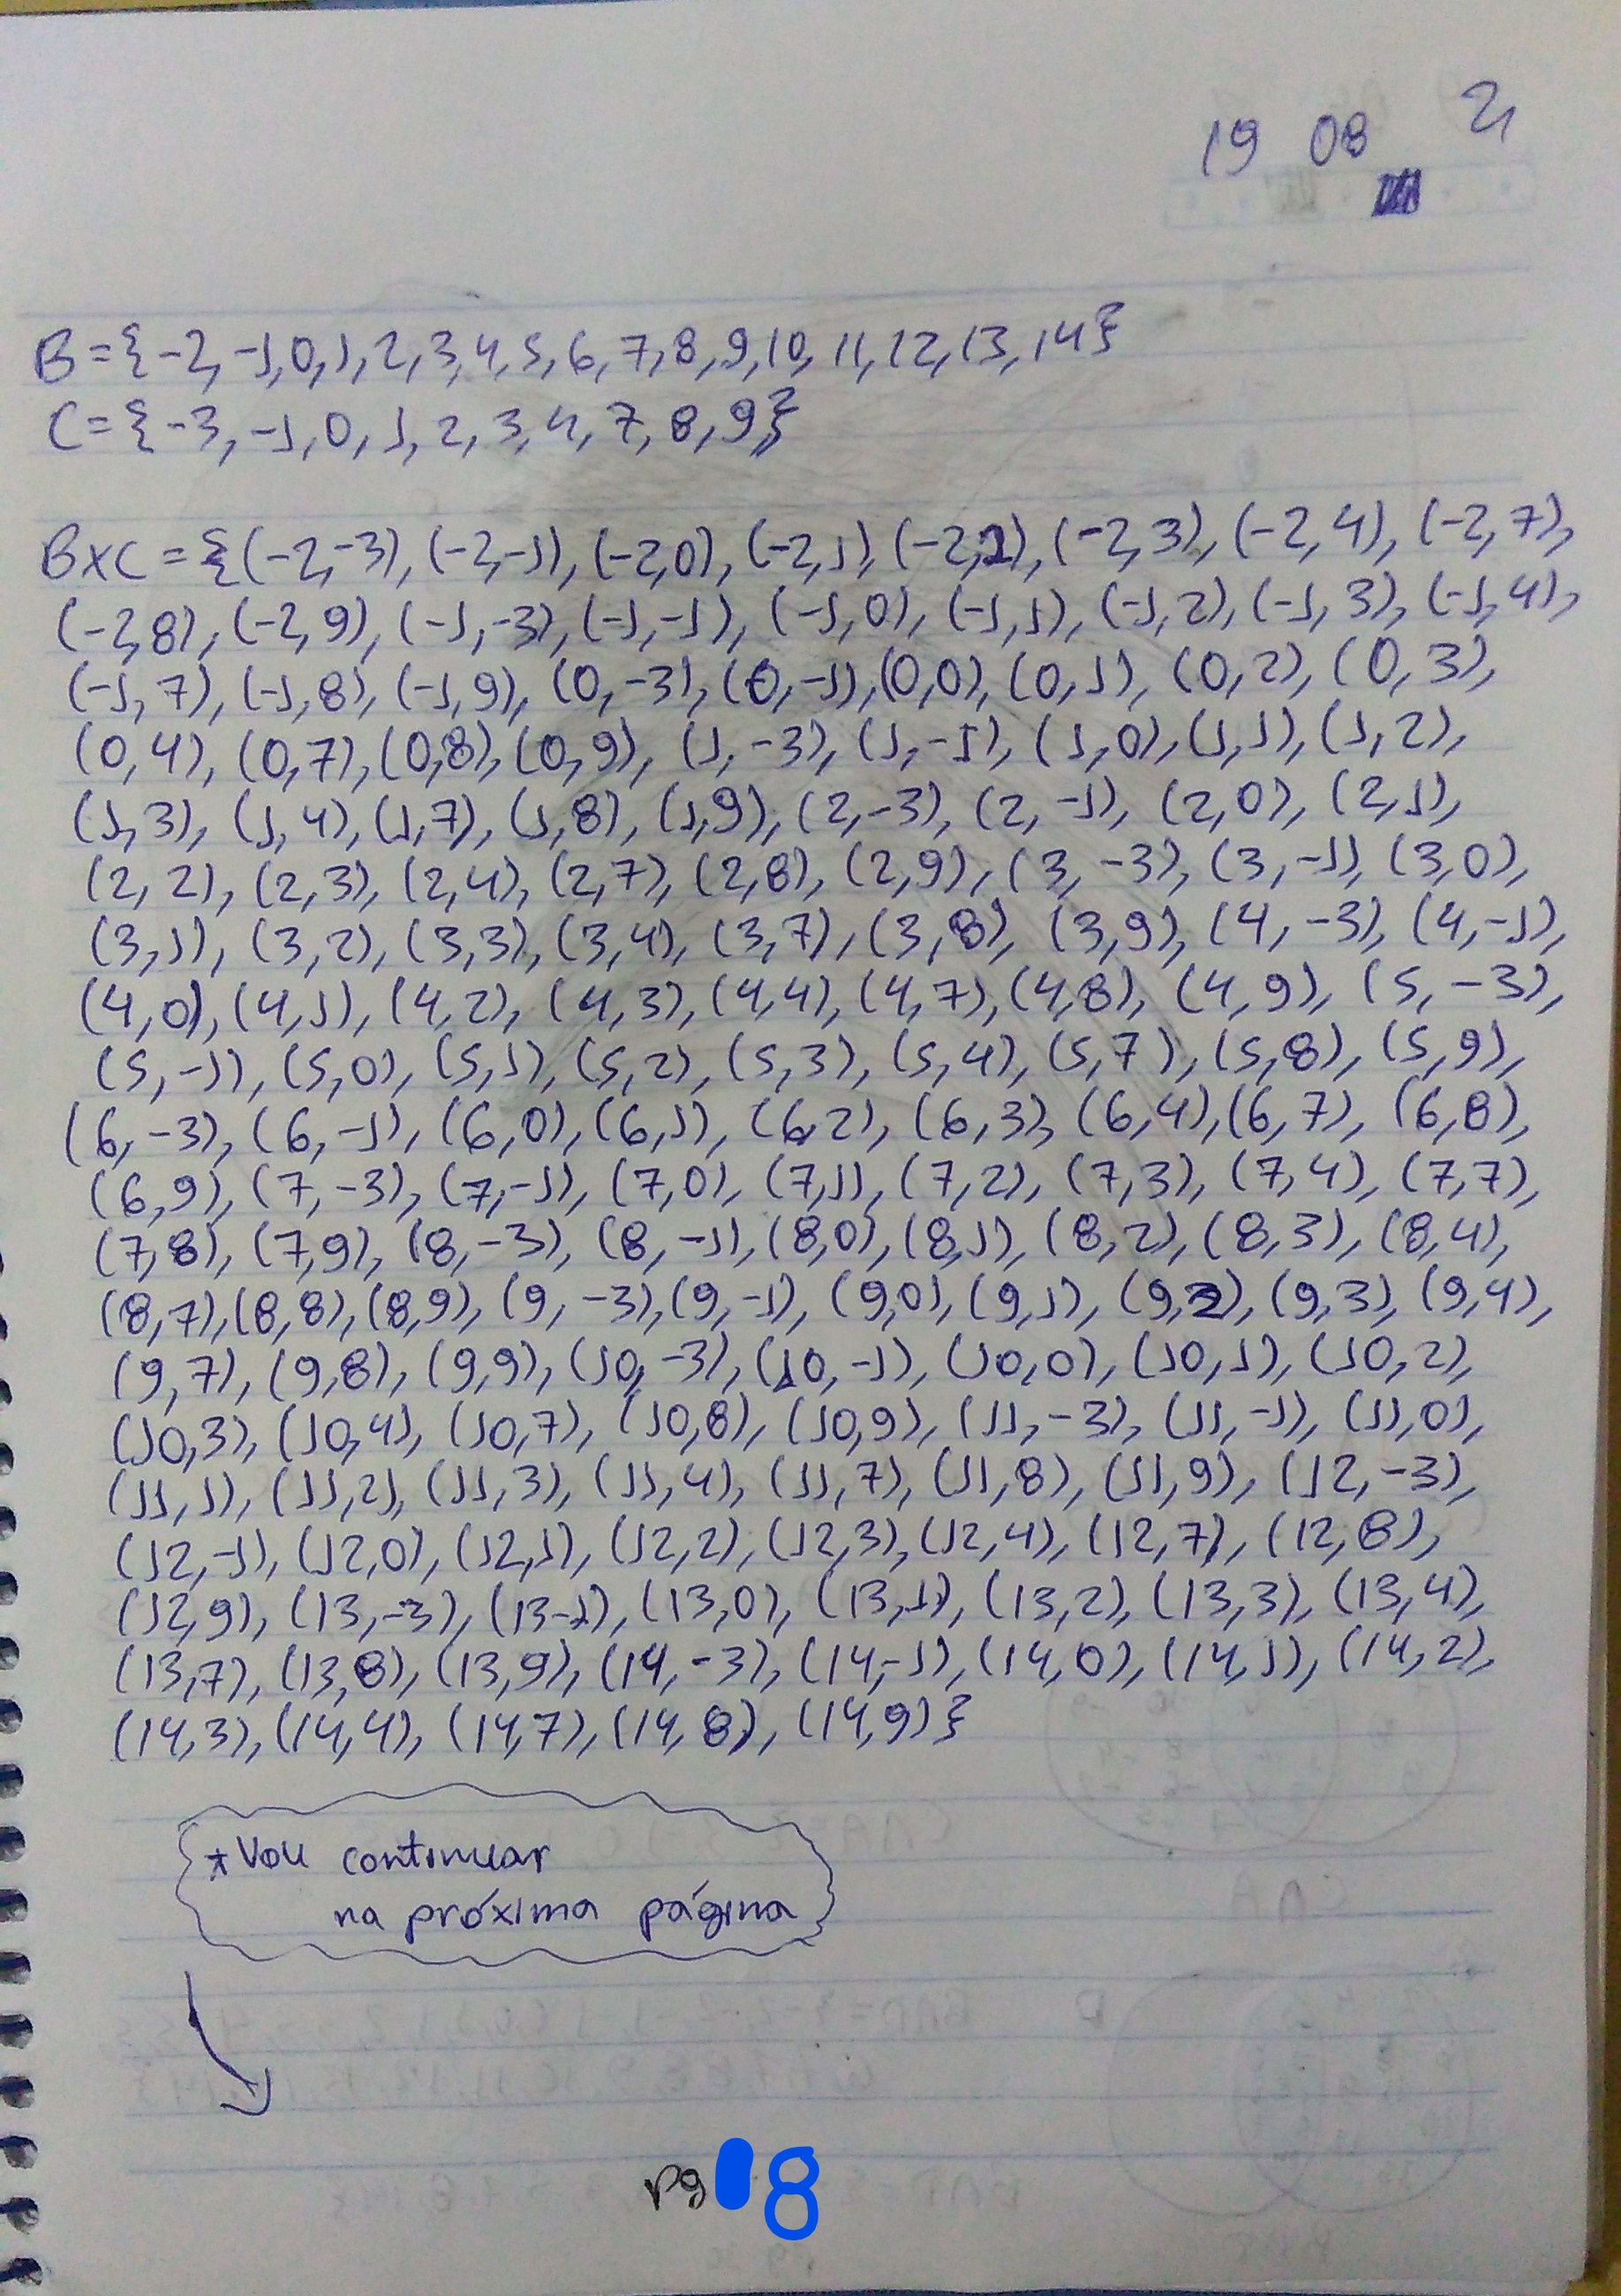 19 08 21
B={-2,-1,0,1,2,3,4,5,6,7,8,9,10,11,12,13,14}
C={-3,-1,0,1,2,3,4,7,8,9}
BXC={(-2,-3),(-2,-1),(-2,0),(-2,1),(-2,2),(-2,3),(-2,4),(-2,7),
(-2,8),(-2,9),(-1,-3),(-1,-1),(-1,0),(-1,1),(-1,2),(-1,3),(-1,4),
(-1,7),(-1,8),(-1,9),(0,-3),(0,-1),(0,0),(0,1),(0,2),(0,3),
(0,4),(0,7),(0,8),(0,9),(1,-3),(1,-1),(1,0),(1,1),(1,2),
(1,3),(1,4),(1,7),(1,8),(1,9),(2,-3),(2,-1),(2,0),(2,1),
(2,2),(2,3),(2,4),(2,7),(2,8),(2,9),(3,-3),(3,-1),(3,0),
(3,1),(3,2),(3,3),(3,4),(3,7),(3,8),(3,9),(4,-3),(4,-1),
(4,0),(4,1),(4,2),(4,3),(4,4),(4,7),(4,8),(4,9),(5,-3),
(5,-1),(5,0),(5,1),(5,2),(5,3),(5,4),(5,7),(5,8),(5,9),
(6,-3),(6,-1),(6,0),(6,1),(6,2),(6,3),(6,4),(6,7),(6,8),
(6,9),(7,-3),(7,-1),(7,0),(7,1),(7,2),(7,3),(7,4),(7,7),
(7,8),(7,9),(8,-3),(8,-1),(8,0),(8,1),(8,2),(8,3),(8,4),
(8,7),(8,8),(8,9),(9,-3),(9,-1),(9,0),(9,1),(9,2),(9,3),(9,4),
(9,7),(9,8),(9,9),(10,-3),(10,-1),(10,0),(10,1),(10,2),
(10,3),(10,4),(10,7),(10,8),(10,9),(11,-3),(11,-1),(11,0),
(11,1),(11,2),(11,3),(11,4),(11,7),(11,8),(11,9),(12,-3),
(12,-1),(12,0),(12,1),(12,2),(12,3),(12,4),(12,7),(12,8),
(12,9),(13,-3),(13-1),(13,0),(13,1),(13,2),(13,3),(13,4),
(13,7),(13,8),(13,9),(14,-3),(14,-1),(14,0),(14,1),(14,2),
(14,3),(14,4),(14,7),(14,8),(14,9)}
*Vou continuar
na próxima página
pg 8